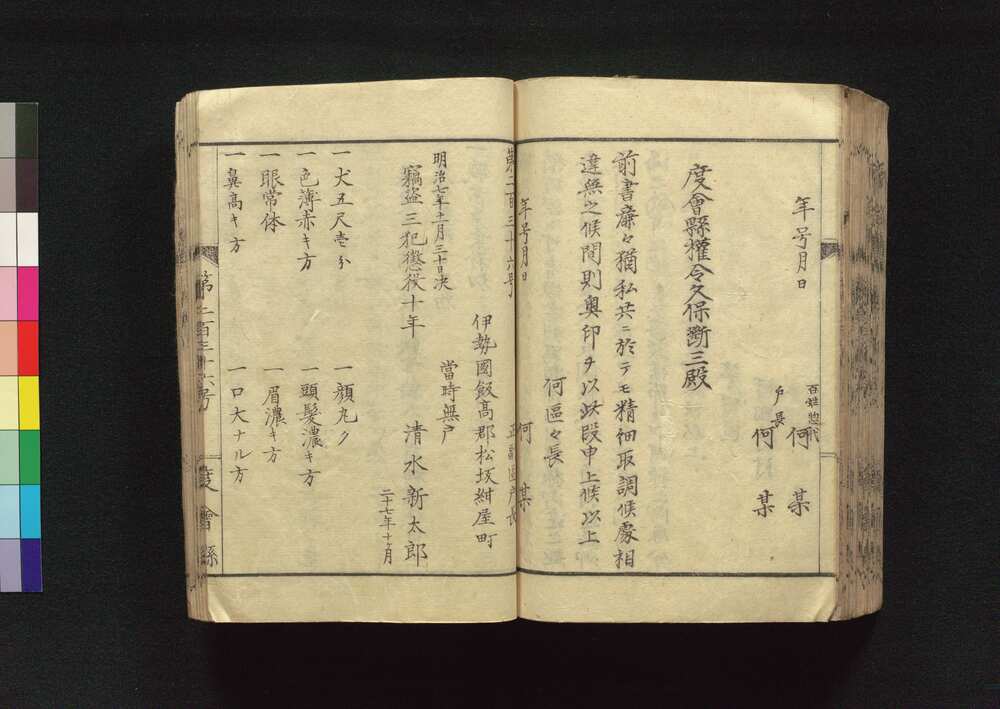 年号月日
百姓惣代
何某
戸長
何某
度會縣權令久保断三殿
前書廉々猶私共ニ於テモ精細取調候處相
違無之候間則奥印ヲ以此段申上候以上
何區々長
年号月日
何某
第二百三十六号
正副區戸長
伊勢國飯高郡松坂紺屋町
當時無戸
清水新太郎
二十七年十ヶ月
明治七年十一月三十日決
竊盗三犯懲役十年
一丈五尺壱分
一顔丸ク
一色薄赤キ方
一頭髮濃キ方
一眼常体
一眉濃キ方
一鼻高キ方
一口大ナル方
第二百三十六号
度會縣